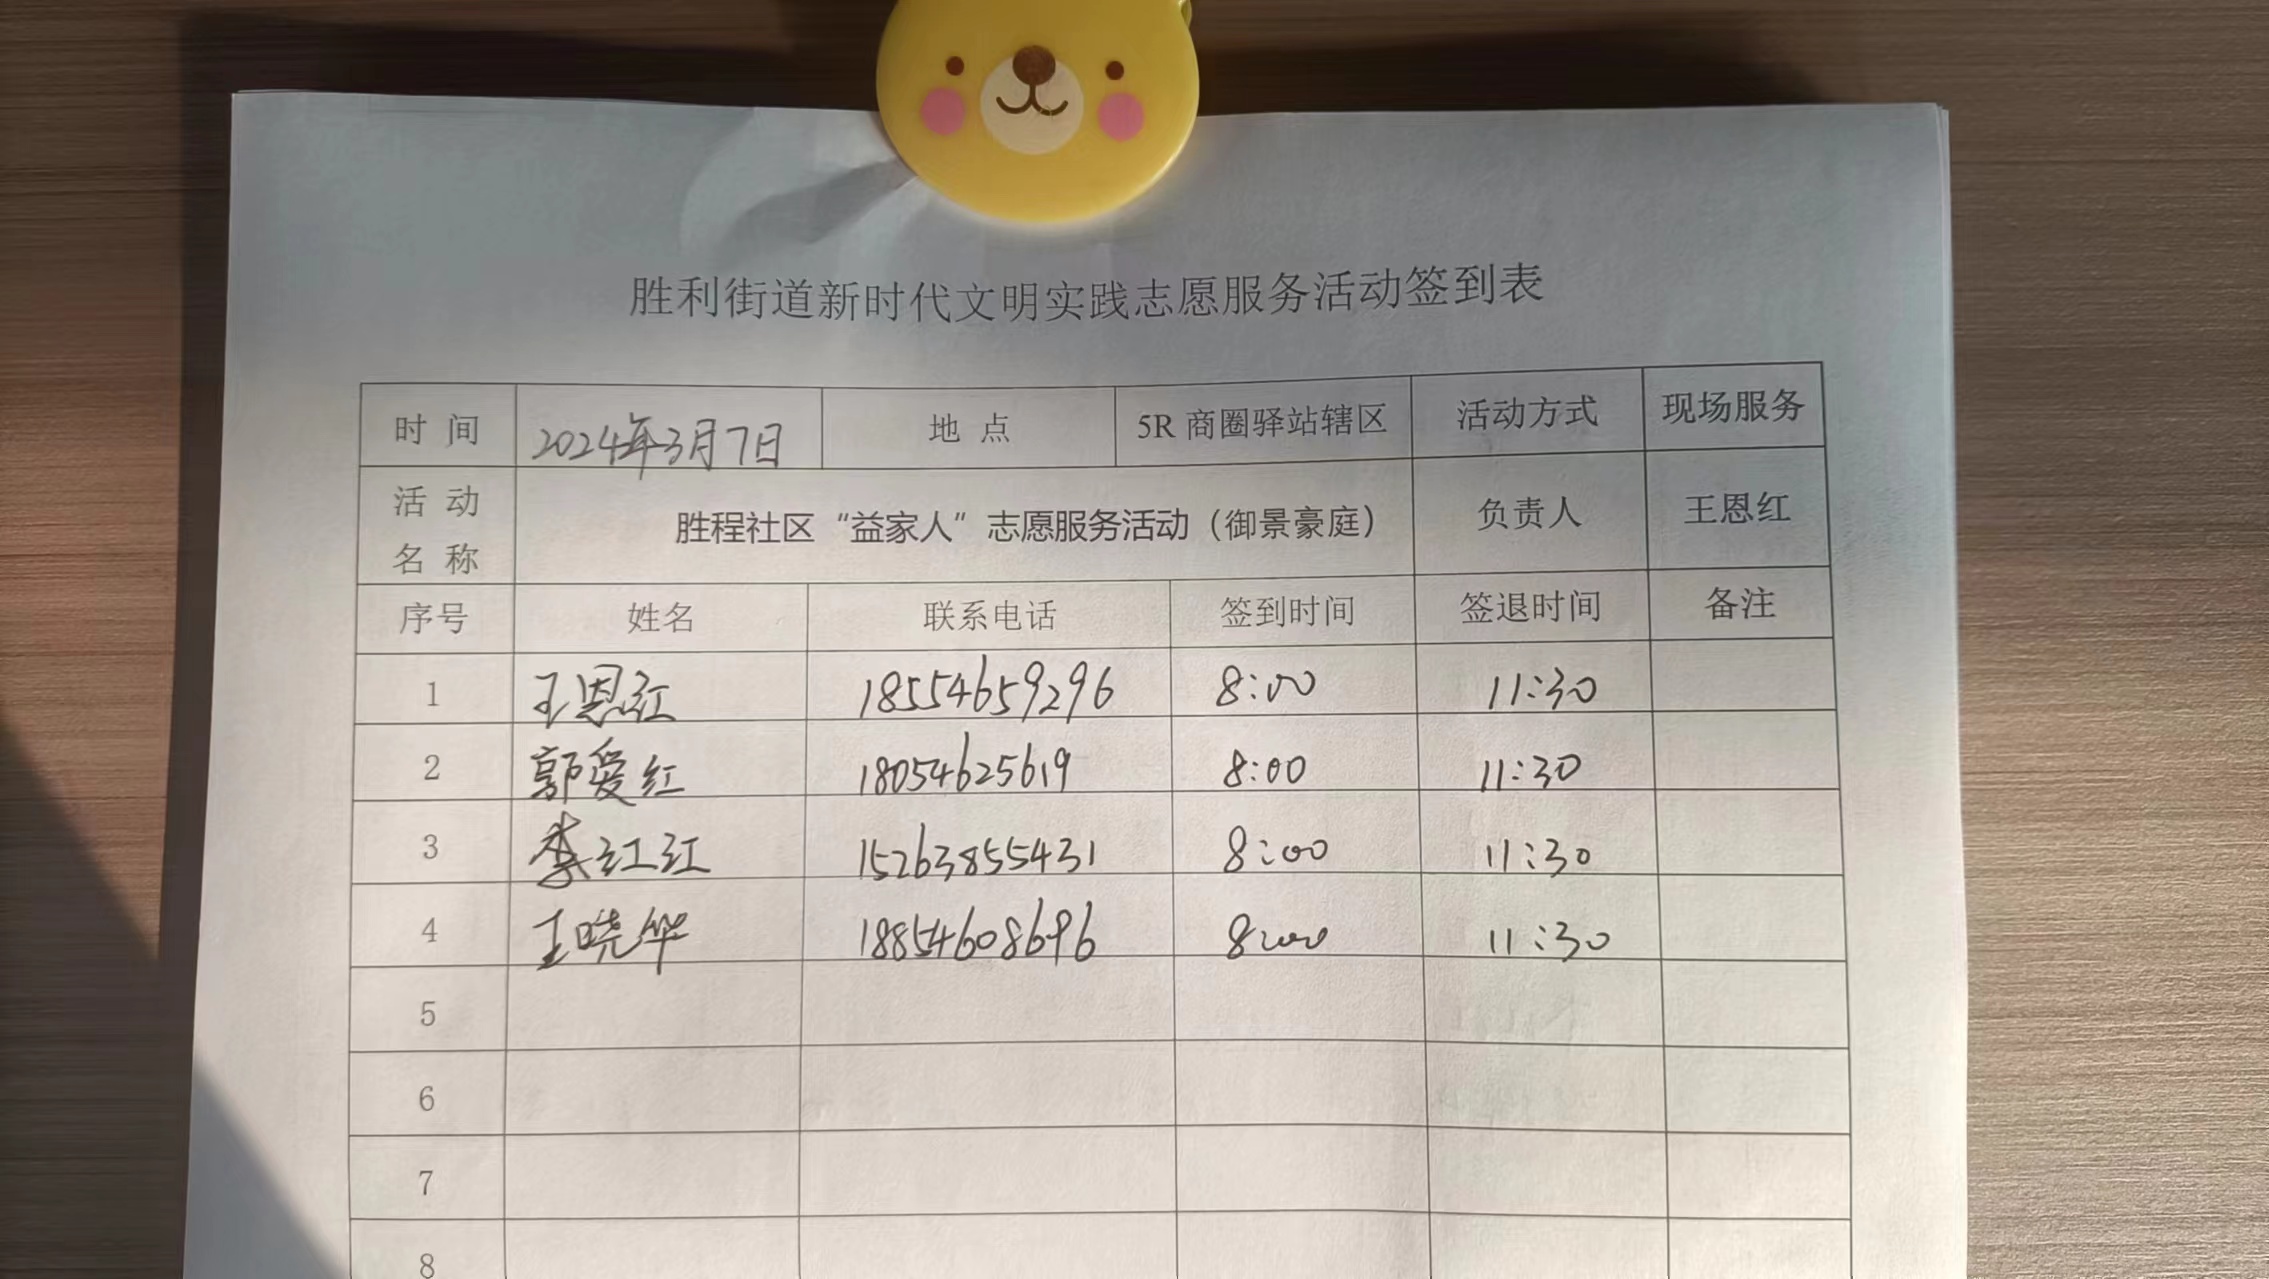 胜利街道新时代文明实践志愿服务活动签到表
时 间 2024年3月7日 地 点 5R 商圈驿站辖区 活动方式 现场服务
活 动
名 称 胜程社区“益家人”志愿服务活动（御景豪庭） 负责人 王恩红
序号 姓名 联系电话 签到时间 签退时间 备注
1 王恩红 18554659296 8:00 11:30
2 郭爱红 18054625619 8:00 11:30
3 李红红 15263855431 8:00 11:30
4 王晓华 18854608696 8:00 11:30
5
6
7
8